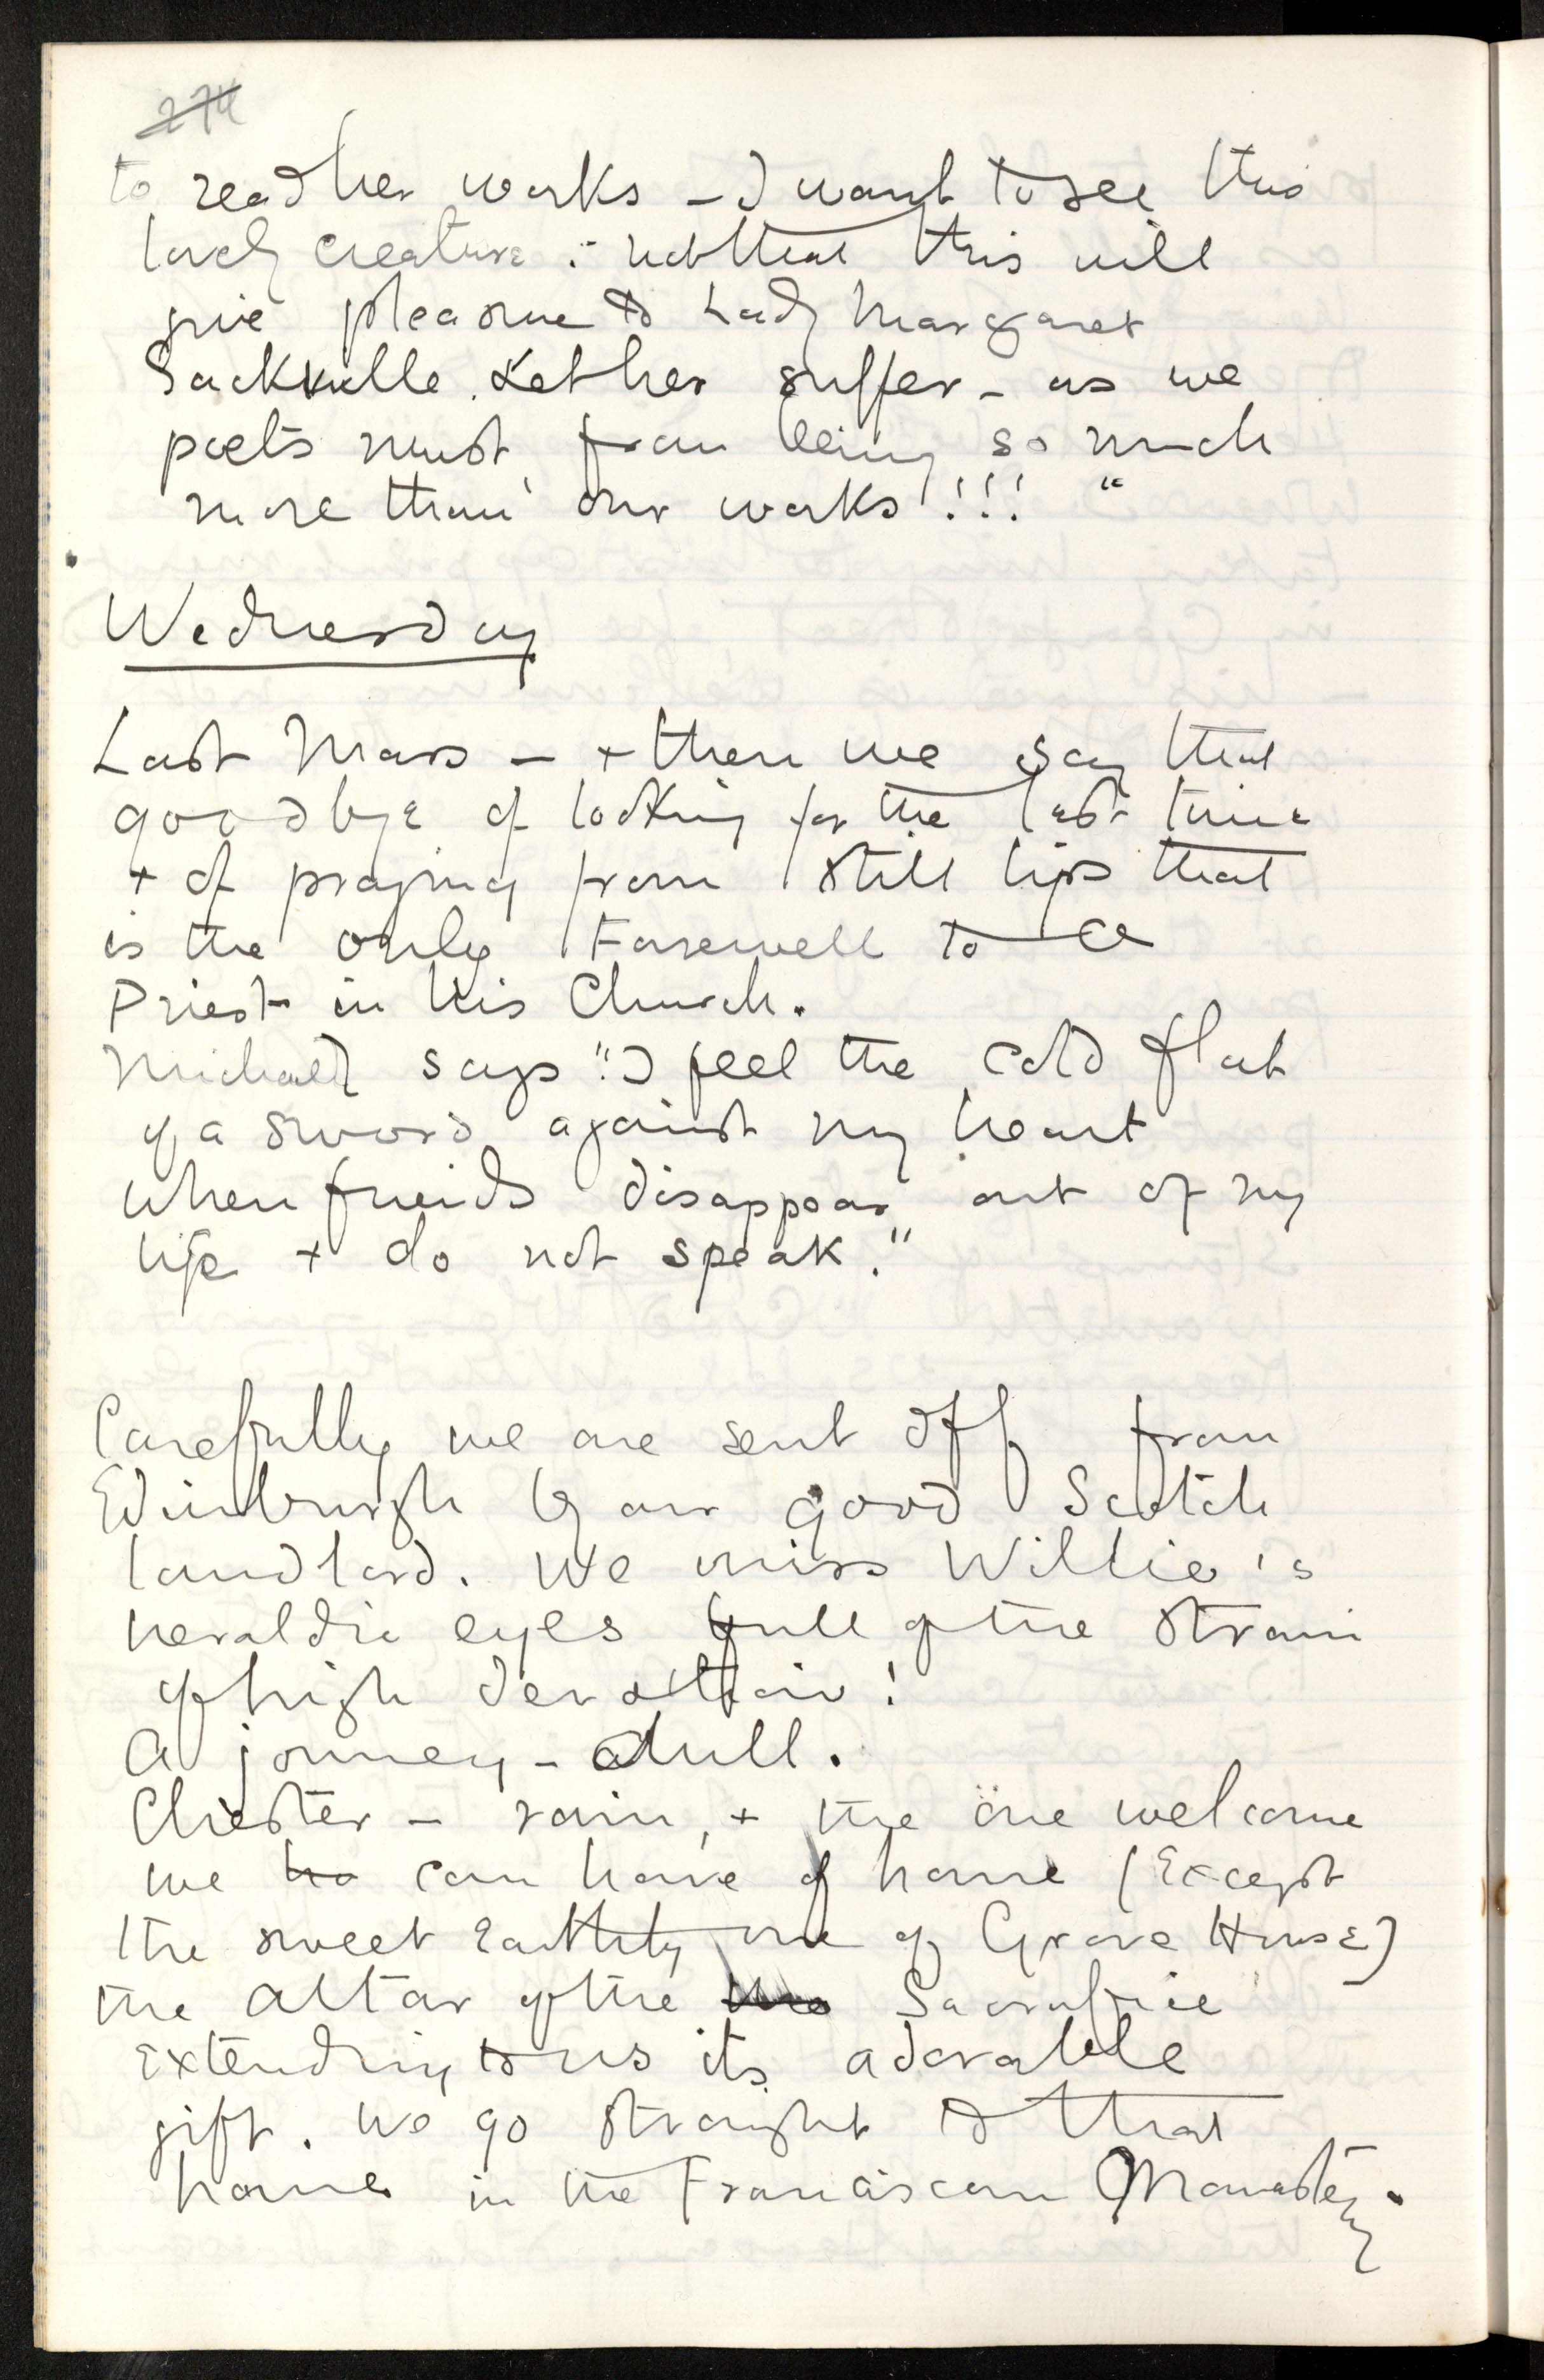 274
to read her works – I want to see this
lovely creature :- not that this will
give pleasure to Lady Margaret
Sackville. Let her suffer – as we
poets must, from being so much
more than our works!!! "
Wednesday
Last Mass – + then we say that
goodbye of looking for the last time
+ of praying from still lips that
is the only Farewell to a
Priest in his Church.
Michael says "I feel the cold flat
of a sword against my heart
when friends disappear out of my
life + do not speak."
Carefully we are sent off from
Edinburgh by our good Scotch
landlord. We miss Willie's
heraldic eyes full of the strain
of high devotion!
A journey – dull.
Chester – rain, + the one welcome
we ha can have of home (Except
the sweet Earthly one of Grove House)
the altar of the the Sacrifice
extending to us its adorable
gift. We go straight to that
home in the Franciscan Monastery.